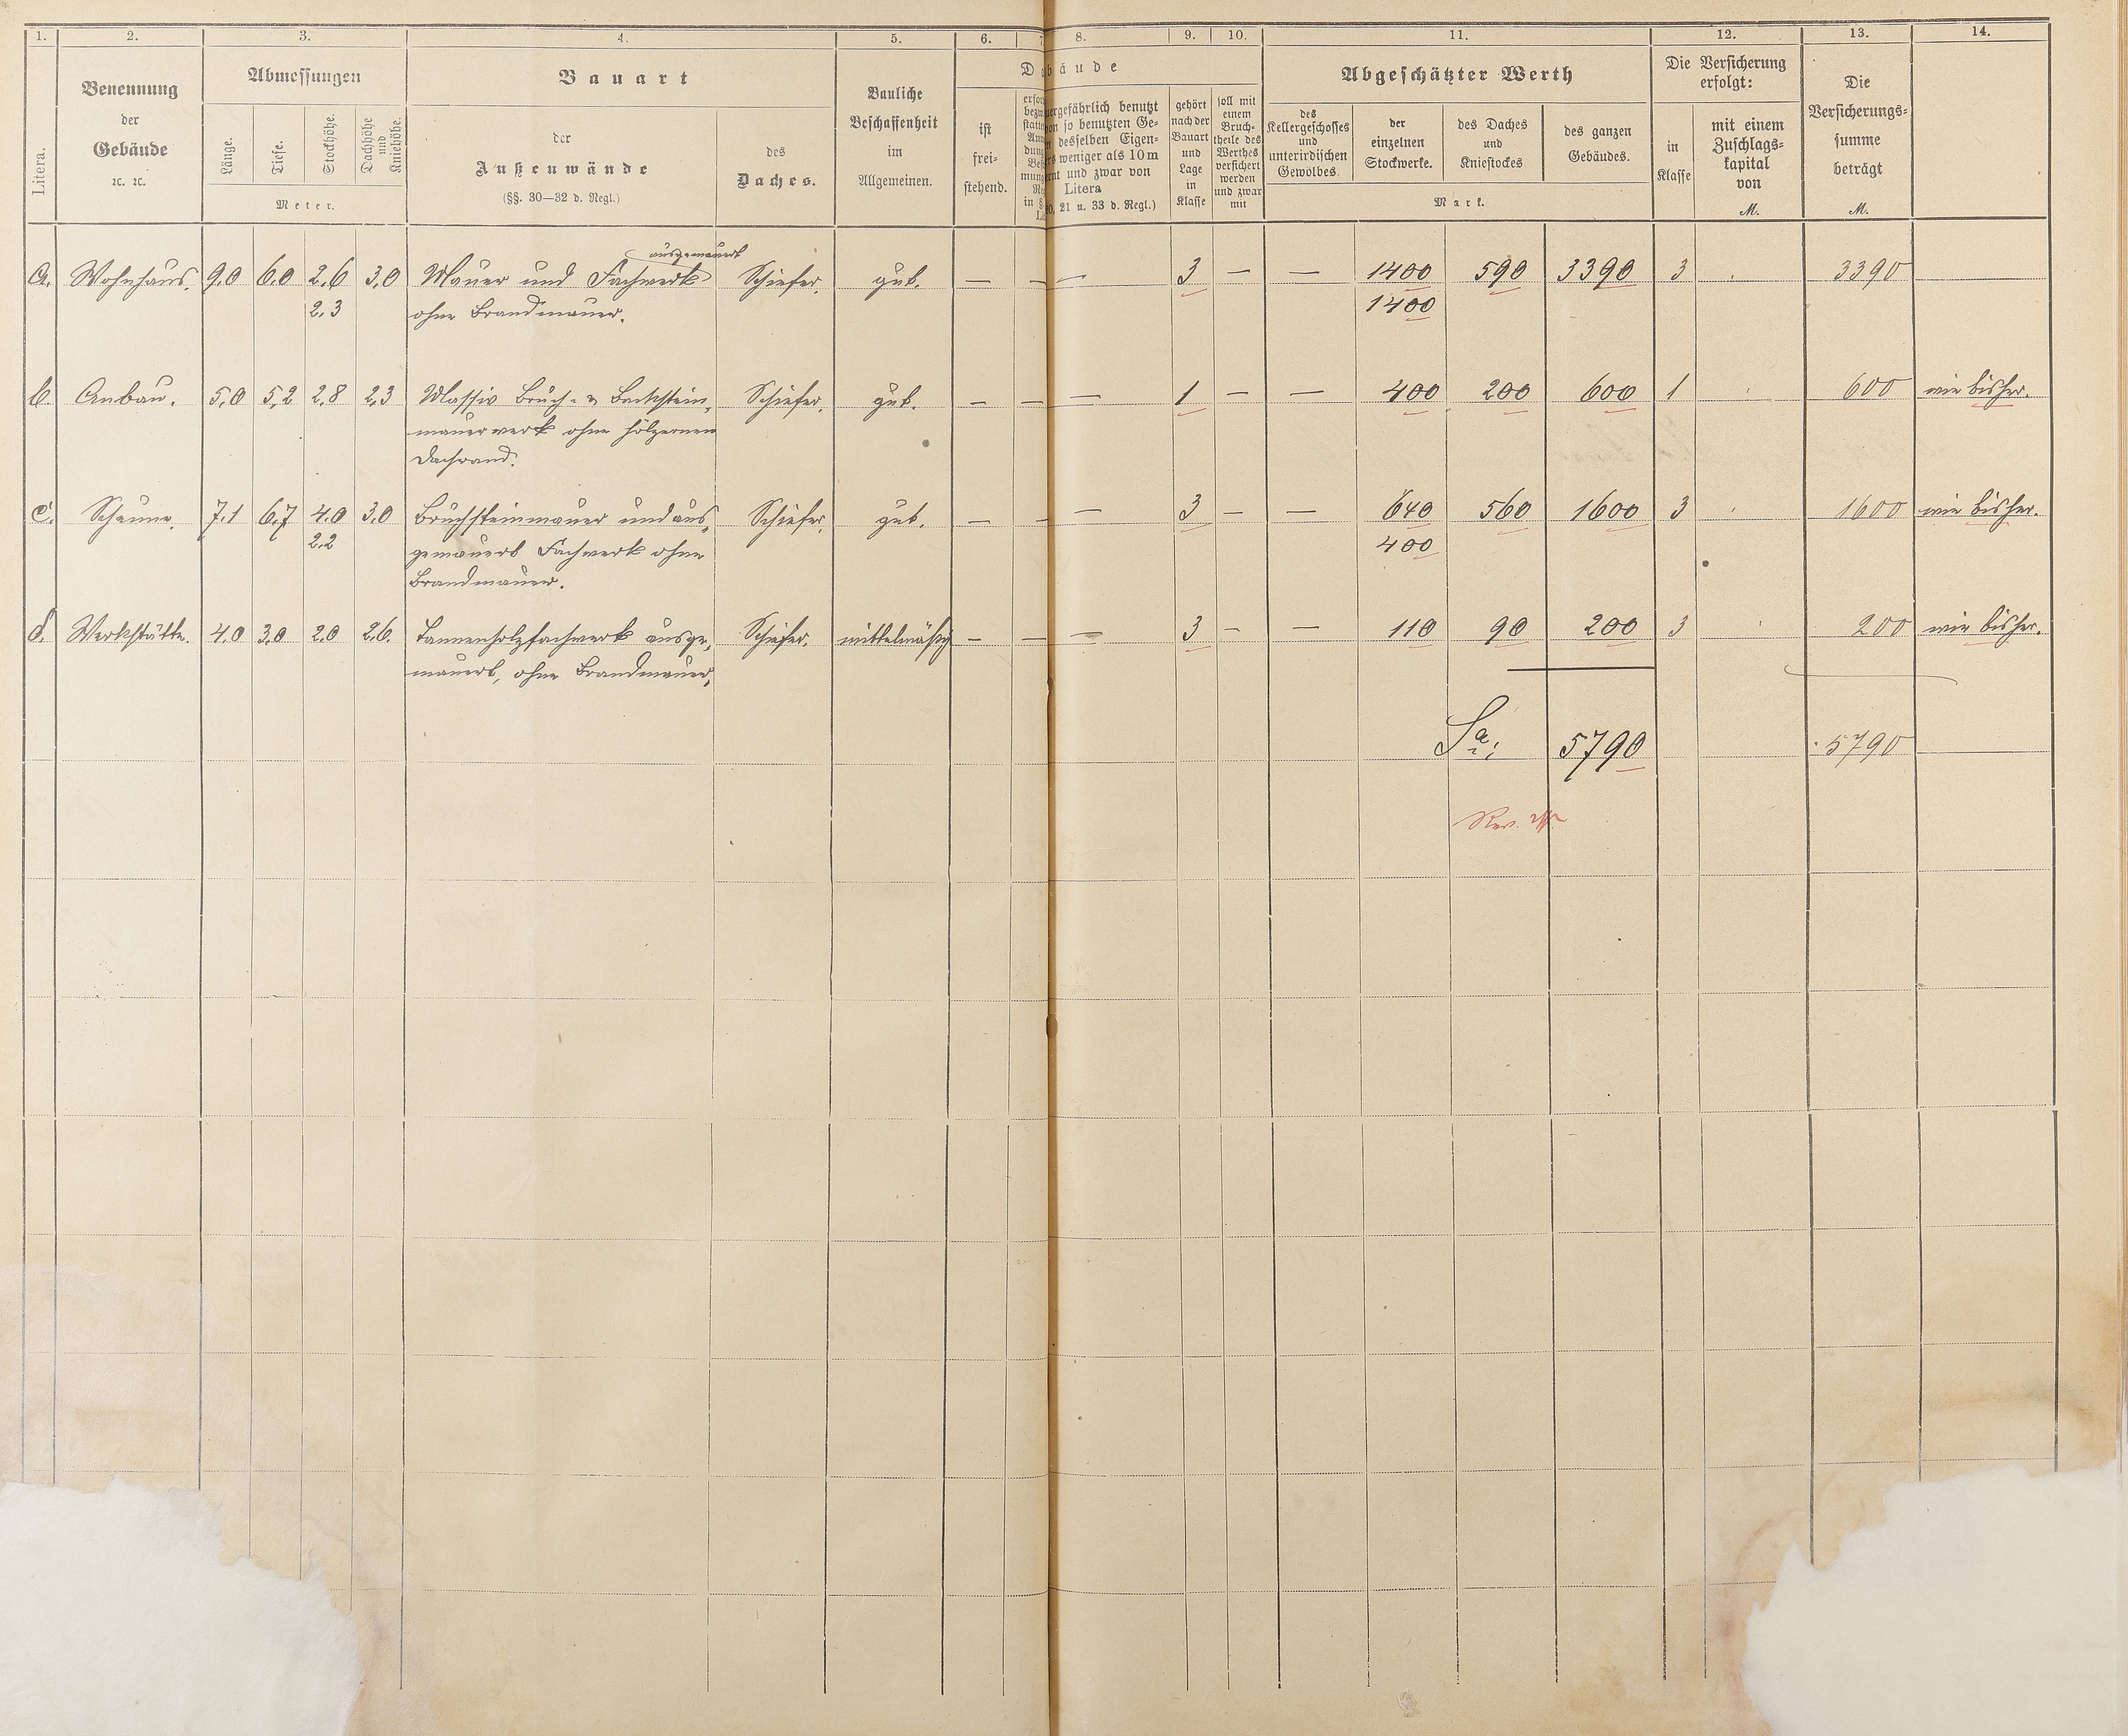 1. 2. 3. 4. 5. 6. 7. 8. 9. 10. 11. 12. 13. 14.
Litera.
Benennung
der
Gebäude
ꝛc. ꝛc.
Abmessungen
Länge.
Tiefe.
Stockhöhe.
Dachhöhe
und
Kniehöhe.
Meter.
Bauart
der
Außenwände
(§§. 30—32 d. Regl.)
des
Daches.
Bauliche
Beschaffenheit
im
Allgemeinen.
bäude
ist
frei-
stehend.
uergefährlich benutzt
von so benutzten Ge-
desselben Eigen-
ers weniger als 10 m
ernt und zwar von
Litera
0, 21 u. 33 d. Regl.)
gehört
nach der
Bauart
und
Lage
in
Klasse
soll mit
einem
Bruch-
theile des
Werthes
versichert
werden
und zwar
mit
Abgeschätzter Werth
des
Kellergeschosses
und
unterirdischen
Gewölbes.
der
einzelnen
Stockwerke.
des Daches
und
Kniestockes
des ganzen
Gebäudes.
Mark.
Die Versicherung
erfolgt:
in
Klasse
mit einem
Zuschlags-
kapital
von
M.
Die
Versicherungs-
summe
beträgt
M.
ausgemauert
a. Wohnhaus. 9,0 6,0 2,6 3,0 Mauer und Fachwerk Schiefer. gut. — — — 3 — — 1400 590 3390 3 . 3390
2,3 ohne Brandmauer. 1400
b. Anbau. 5,0 5,2 2,8 2,3 Massiv Bruch- & Backstein- Schiefer. gut. — — — 1 — — 400 200 600 1 . 600 wie bisher.
mauerwerk ohne hölzernen
Dachwand.
c. Scheune. 7,1 6,7 4,0 3,0 Bruchsteinmauer und aus- Schiefer. gut. — — — 3 — — 640 560 1600 3 . 1600 wie bisher.
2,2 gemauert Fachwerk ohne 400
Brandmauer.
d. Werkstätte. 4,0 3,0 2,0 2,6. Tannenholzfachwerk ausge- Schiefer. mittelmäßig — — — 3 — — 110 90 200 3 . 200 wie bisher.
mauert, ohne Brandmauer.
Sa: 5790 5790
Rev.